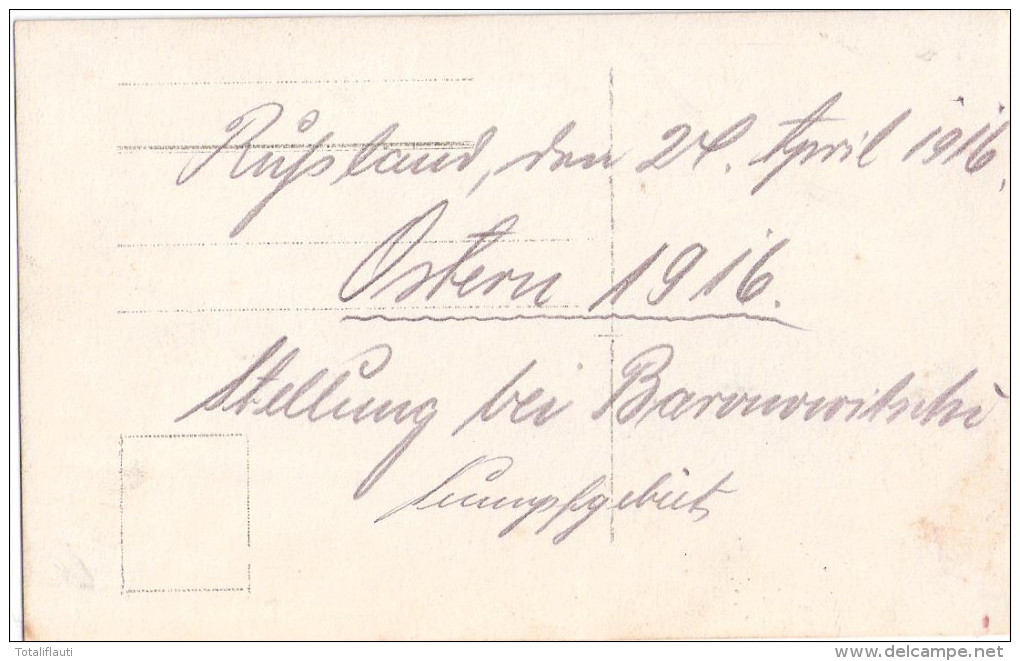 Rußland, den 24. April 1916.
Ostern 1916.
Stellung bei Baronowitschi
Sumpfgebiet
Totaliflauti
delcampe.net